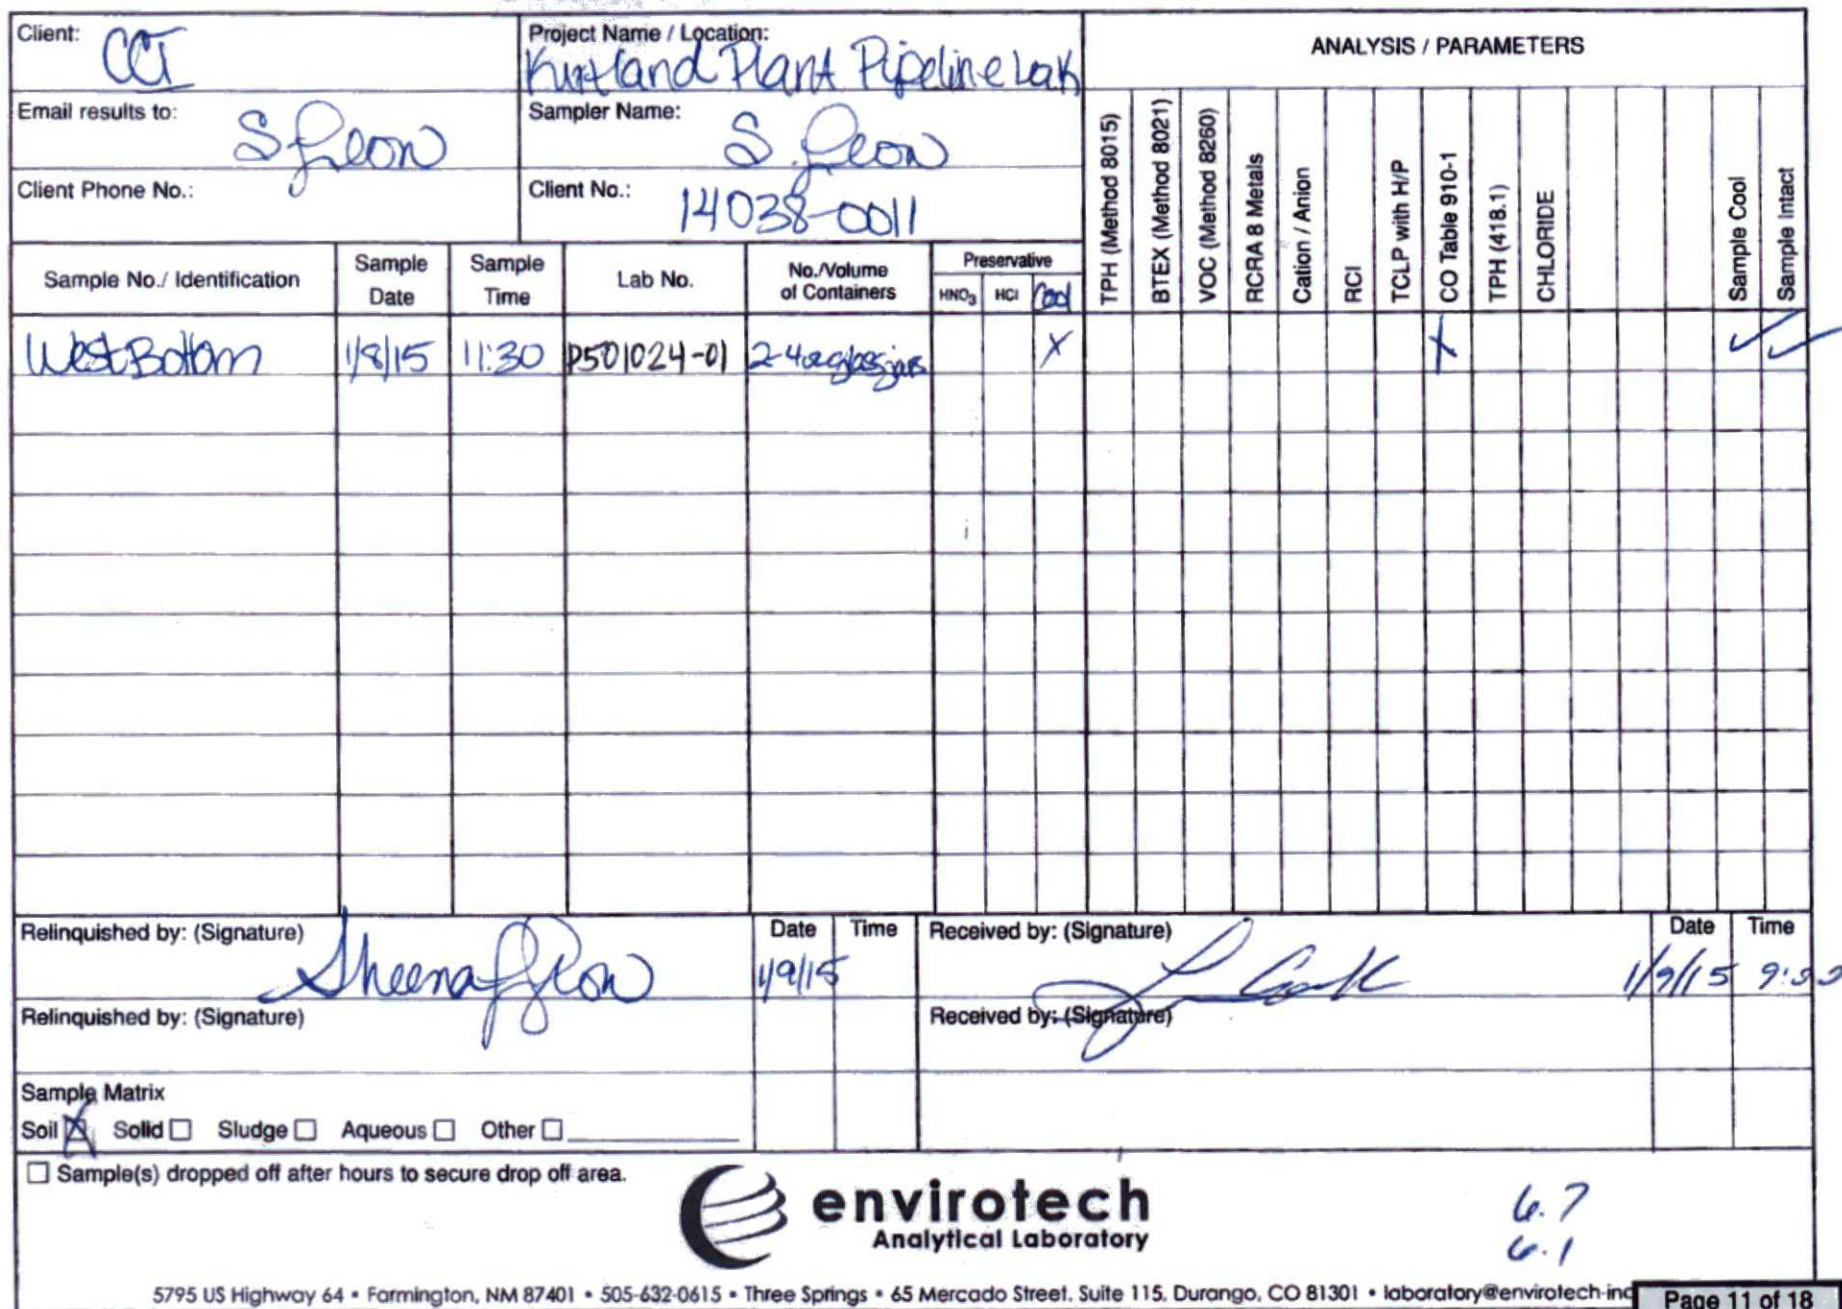 Client: CCI
Project Name / Location: Kurtland Plant Pipeline Leak
ANALYSIS / PARAMETERS
Email results to: S Leon
Sampler Name: S. Leon
Client Phone No.:
Client No.: 14038-0011
Sample No./ Identification
Sample Date
Sample Time
Lab No.
No./Volume of Containers
Preservative
HNO3 HCl Cool
TPH (Method 8015)
BTEX (Method 8021)
VOC (Method 8260)
RCRA 8 Metals
Cation / Anion
RCI
TCLP with H/P
CO Table 910-1
TPH (418.1)
CHLORIDE
Sample Cool
Sample Intact
West Bottom 1/8/15 11:30 P501024-01 2-4oz glass jars X X ✓ ✓
Relinquished by: (Signature) Sheena Leon
Date 1/9/15
Time
Received by: (Signature)
Date 1/9/15
Time
Relinquished by: (Signature)
Received by: (Signature)
Sample Matrix
Soil X Solid □ Sludge □ Aqueous □ Other □
□ Sample(s) dropped off after hours to secure drop off area.
envirotech
Analytical Laboratory
6.7
6.1
5795 US Highway 64 • Farmington, NM 87401 • 505-632-0615 • Three Springs • 65 Mercado Street, Suite 115, Durango, CO 81301 • laboratory@envirotech-inc
Page 11 of 18